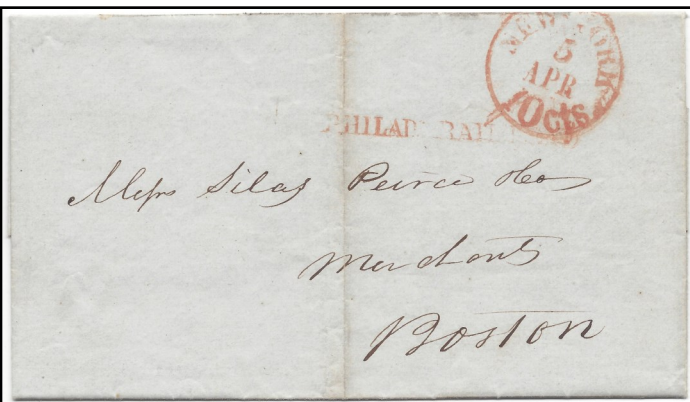 NEW YORK
5
APR
10cts
PHILAD RAIL
Mess Silas Peirce & Co
Merchants
Boston